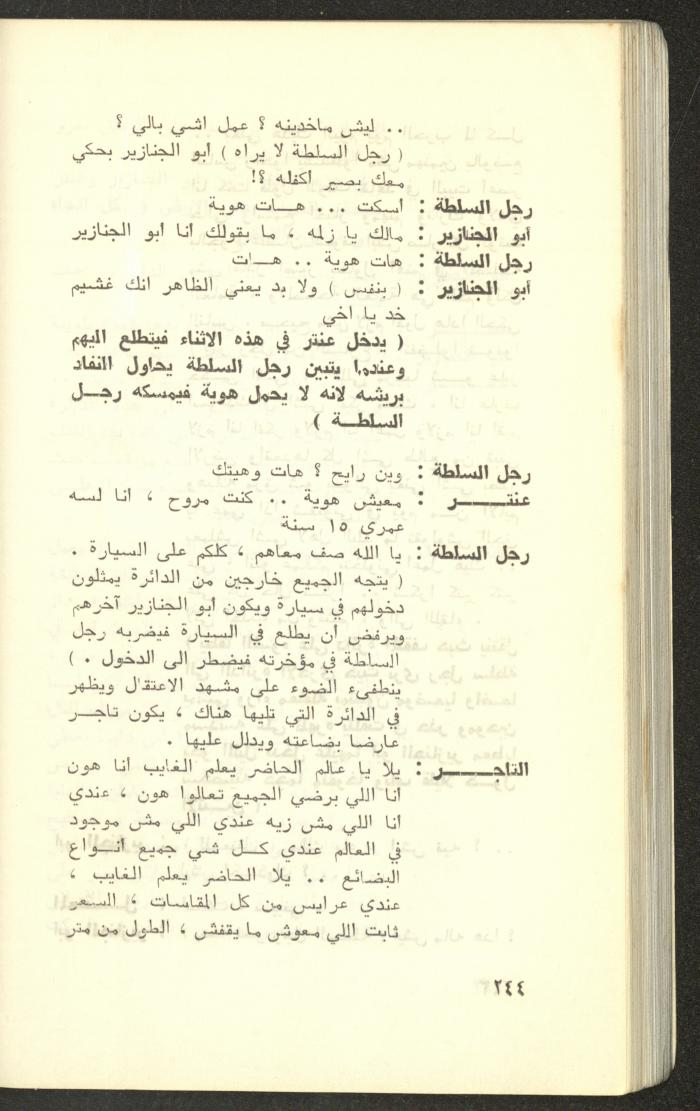 .. ليش ماخدينه ؟ عمل اشي بالي ؟
( رجل السلطة لا يراه ) أبو الجنازير بحكي
معك بصير اكفله ؟!
رجل السلطة : أسكت ... هـــات هوية
أبو الجنازير : مالك يا زلمه ، ما بقولك أنا أبو الجنازير
رجل السلطة : هات هوية .. هـــات
أبو الجنازير : ( بنفس ) ولا بد يعني الظاهر انك غشيم
خد يا اخي
( يدخل عنتر في هذه الاثناء فيتطلع اليهم
وعندما يتبين رجل السلطة يحاول النفاد
بريشه لانه لا يحمل هوية فيمسكه رجــل
السلطــة )
رجل السلطة : وين رايح ؟ هات وهيتك
عنتــــــــر : معيش هوية .. كنت مروح ، انا لسه
عمري ١٥ سنة
رجل السلطة : يا الله صف معاهم ، كلكم على السيارة .
( يتجه الجميع خارجين من الدائرة يمثلون
دخولهم في سيارة ويكون أبو الجنازير آخرهم
ويرفض أن يطلع في السيارة فيضربه رجل
السلطة في مؤخرته فيضطر الى الدخول . )
ينطفىء الضوء على مشهد الاعتقال ويظهر
في الدائرة التي تليها هناك ، يكون تاجــر
عارضا بضاعته ويدلل عليها .
التاجــــــــر : يلا يا عالم الحاضر يعلم الغايب أنا هون
أنا اللي برضي الجميع تعالوا هون ، عندي
أنا اللي مش زيه عندي اللي مش موجود
في العالم عندي كــل شي جميع أنــواع
البضائع .. يلا الحاضر يعلم الغايب ،
عندي عرايس من كل المقاسات ، السعر
ثابت اللي معوش ما يقفش ، الطول من متر
٢٤٤